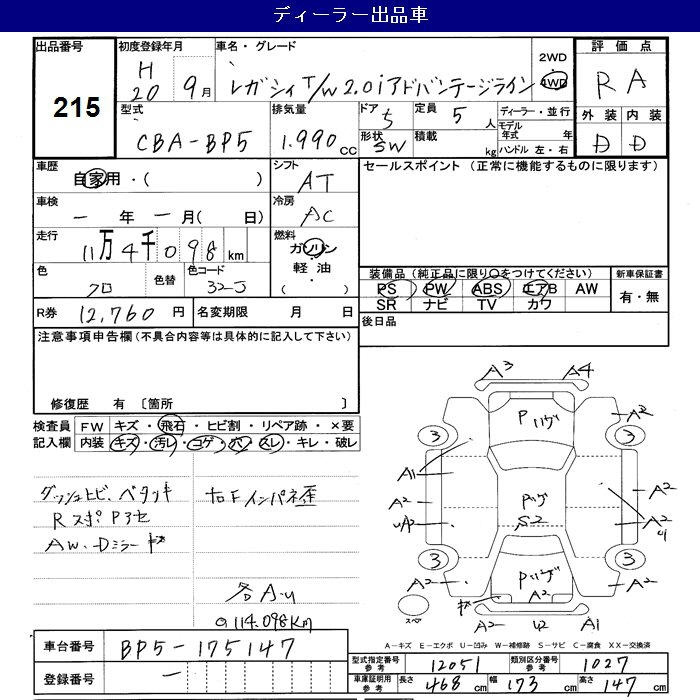 ディーラー出品車
出品番号
215
初度登録年月
H
20 9月
車名・グレード
レガシィ T/W 2.0i アドバンテージライン
2WD
・
4WD
評価点
R A
外装 内装
D D
型式
CBA-BP5
排気量
1.990 cc
ドア
5
定員
5 人
形状
SW
積載
kg
ディーラー・並行
モデル
年式 年
ハンドル 左・右
車歴
自家用・( )
シフト
AT
セールスポイント (正常に機能するものに限ります)
車検
ー 年 ー 月( 日)
冷房
AC
走行
11万4千098 km
燃料
ガソリン
軽油
・
( )
色
クロ
色替
色コード
32J
装備品(純正品に限り○をつけてください)
PS PW ABS エアB AW
SR ナビ TV カワ
新車保証書
有・無
R券 12,760 円
名変期限 月 日
後日品
注意事項申告欄(不具合内容等は具体的に記入して下さい)
修復歴 有 〔箇所 〕
検査員
記入欄
FW キズ・飛石・ヒビ割・リペア跡・×要
内装 キズ・汚レ・コゲ・穴・スレ・キレ・破レ
ダッシュトビ、ベタツキ
右Fインパネ歪
Rスポ Pアセ
AW、Dミラーキズ
各A、u
114.098Km
A3 A4
Pハゲ
A2
3 3
A1
A2
A2
uA2
Pハゲ
S2
A2
A2
3 3
A2
Pハゲ
A2
A2
スペ
A2 U2 A1
A-キズ E-エクボ U-凹み W-補修跡 S-サビ C-腐食 XX-交換済
車台番号 BP5-175147
登録番号 ー
型式指定番号
参考
12051
類別区分番号
参考
1027
車庫証明用
参考
長さ 468 cm 幅 173 cm 高さ 147 cm